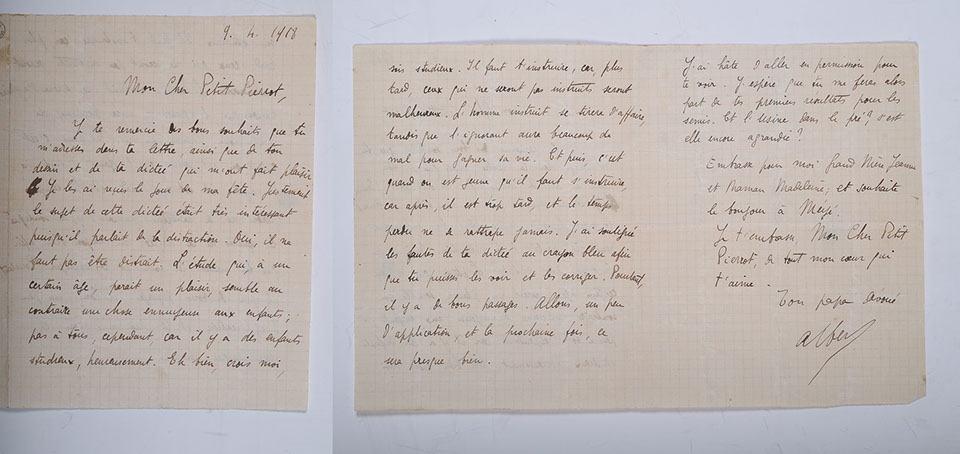 9. 4. 1918
Mon Cher Petit Pierrot,
Je te remercie des bons souhaits que tu
m'adresses dans ta lettre, ainsi que de ton
dessin et de ta dictée qui m'ont fait plaisir
Je les ai reçus le jour de ma fête. Justement
le sujet de cette dictée était très intéressant
puisqu'il parlait de la distraction. Oui, il ne
faut pas être distrait. L'étude qui, à un
certain âge, parait un plaisir semble au
contraire une chose ennuyeuse aux enfants ;
pas à tous, cependant car il y a des enfants
studieux, heureusement. Eh bien, crois moi,
sois studieux. Il faut t'instruire, car, plus
tard, ceux qui ne seront pas instruits seront
malheureux. L'homme instruit se tirera d'affaire,
tandis que l'ignorant aura beaucoup de
mal pour gagner sa vie. Et puis, c'est
quand on est jeune qu'il faut s'instruire,
car après, il est trop tard, et le temps
perdu ne se rattrape jamais. J'ai souligné
les fautes de ta dictée au crayon bleu afin
que tu puisses les voir et les corriger. Pourtant,
il y a de bons passages. Allons, un peu
d'application et la prochaine fois, ce
sera presque bien.
J'ai hâte d'aller en permission pour
te voir. J'espère que tu me feras alors
part de tes premiers résultats pour les
semis. Et l'usine dans le pré ? s'est
elle encore agrandie ?
Embrasse pour moi Grand Mère Jeanne
et Maman Madeleine, et souhaite
le bonjour à
Je t'embrasse Mon Cher Petit
Pierrot, de tout mon cœur qui
t'aime.
Ton papa dévoué
Albert